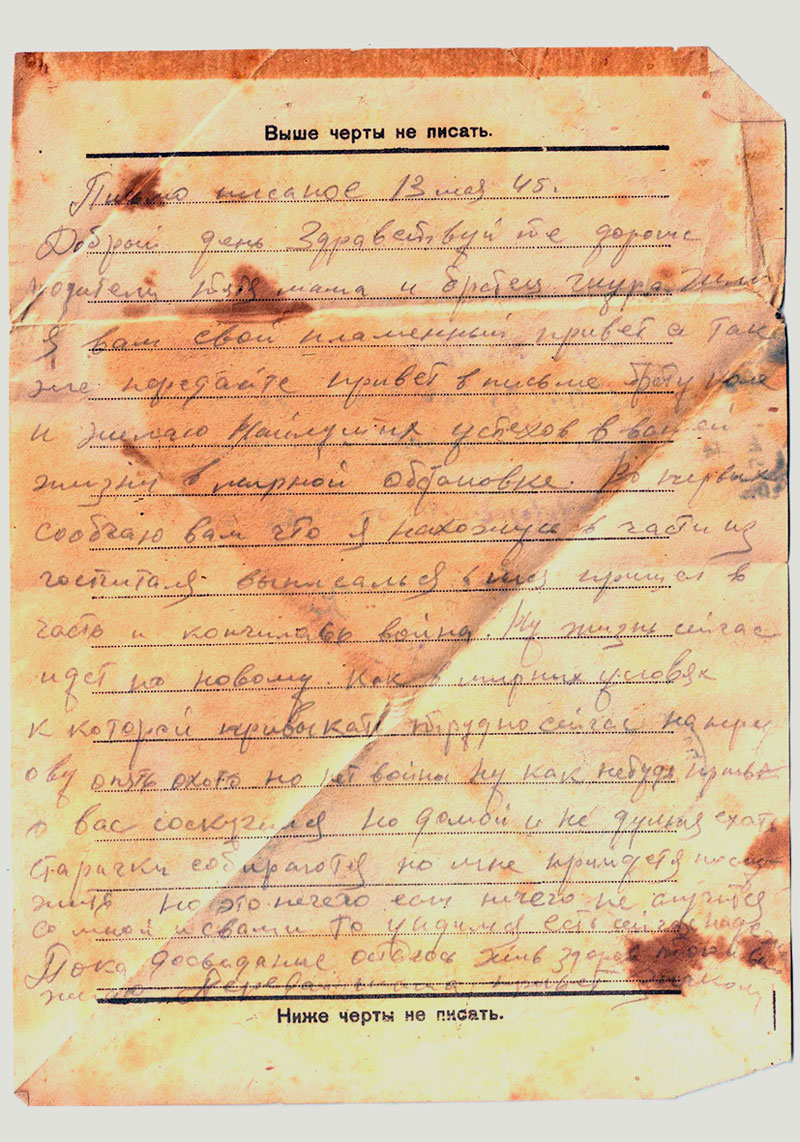 Выше черты не писать.
Письмо писаное 13 мая 45 г.
Добрый день Здравствуй те дороги
родители тятя мама и братец шура
Я вам свой пламенный привет а так
же передайте привет в письме брату коле
и желаю Найлутших успехов в вашей
жизни в мирной обстановке. Во первых
сообчаю вам что я нахожусь в части из
госпиталя выписалься пришол в
часть и кончилась война. Ну жизнь сейчас
идет по новому. Как в мирних условях
к которой привыкать трудно сейчас на пере
ову опять охота но нет война ну как небудь
о вас соскучился но домой и не думая ехать
старички собираются но мне примдетя послу
жить но это нечего если ничего не случится
со мной и свами то увидимся есть сейчас
Пока досвидание остаюсь жив здоров
желаю привет
Ниже черты не писать.